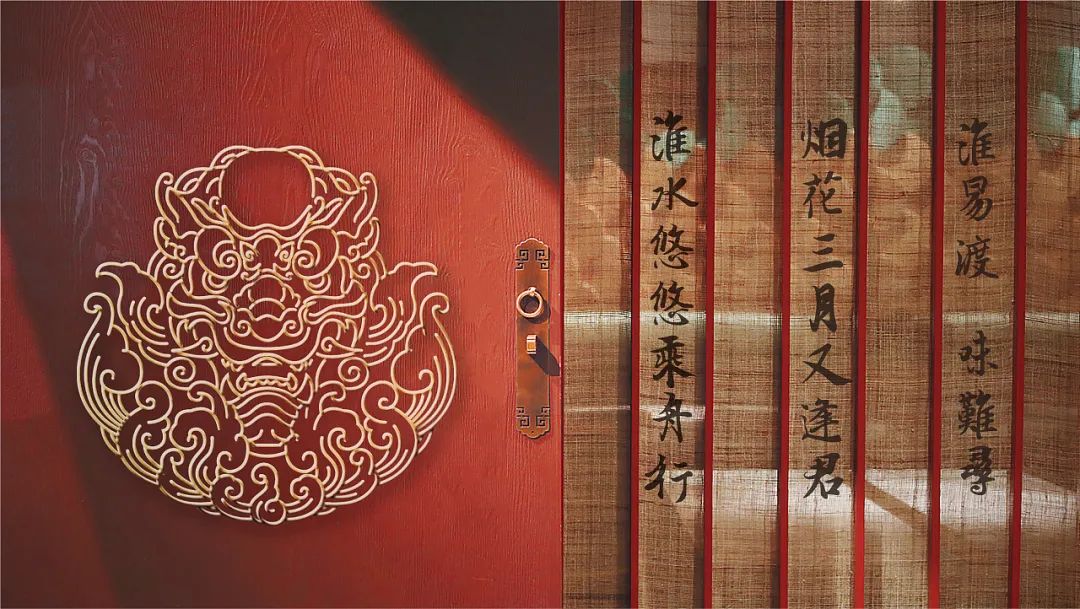 淮易渡 味難尋
烟花三月又逢君
淮水悠悠乘舟行